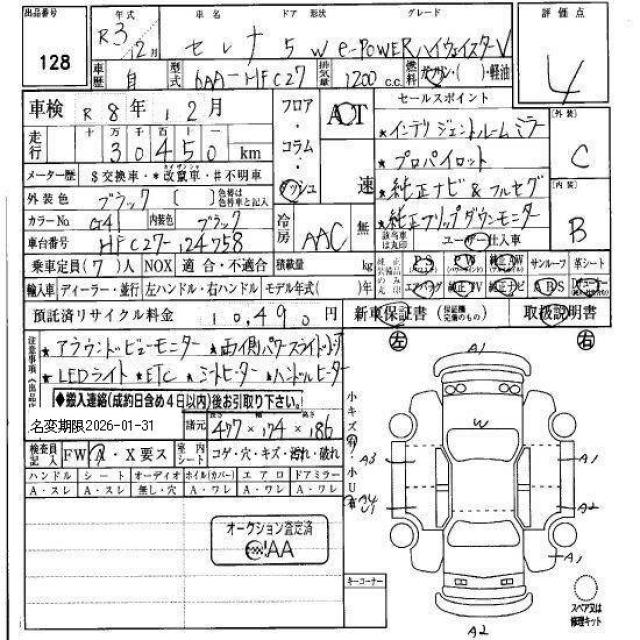 出品番号 年式 車名 ドア 形状 グレード 評価点
128 R3 12月 セレナ 5W e-POWERハイウェイスターV 4
車歴 自 型式 6AA-HFC27 排気量 1200 c.c. 燃料 ガソリン・( )・軽油
車検 R8年12月 フロア・コラム・ダッシュ AT 速 セールスポイント 外装 C
走行 十 万 千 百 十 一
30450 km
★インテリジェントルームミラー
メーター歴 $交換車・*改竄車・#不明車
★プロパイロット
内装 B
外装色 ブラック [ ] 色替は色替車と記入
★純正ナビ&フルセグ
カラーNo G41 内装色 ブラック 冷房 AAC 無
★純正フリップダウンモニター
車台番号 HFC27-124758
該当車は丸印 ユーザー仕入車
乗車定員(7)人 NOX 適合・不適合 積載量 kg
純正装備品のみ丸印 PS PW 純正AW サンルーフ 革シート
輸入車 ディーラー・並行 左ハンドル・右ハンドル モデル年式( )年
エアバッグ 純正TV 純正ナビ ABS
預託済リサイクル料金 10,490円 新車保証書 (保証継承完備のもの) 取扱説明書
注意事項
★アラウンドビューモニター ★両側パワースライドドア
★LEDライト ★ETC ★シートヒーター ★ハンドルヒーター
◆搬入連絡(成約日含め4日以内)後お引取り下さい。
名変期限2026-01-31 諸元 長さ 477 × 幅 174 × 高さ 186
検査員記入 FW A・X要ス 室内シート コゲ・穴・キズ・汚れ・破れ
ハンドル シート オーディオ ホイル(カバー) エアロ ドアミラー
A・スレ A・スレ 無し・穴 A・ワレ A・ワレ A・ワレ
小キズ有 小U有
左 右
A1
W
A3 A1
A4 A2
U1
A1
A2
オークション査定済
JAA
キーコーナー
スペア又は修理キット